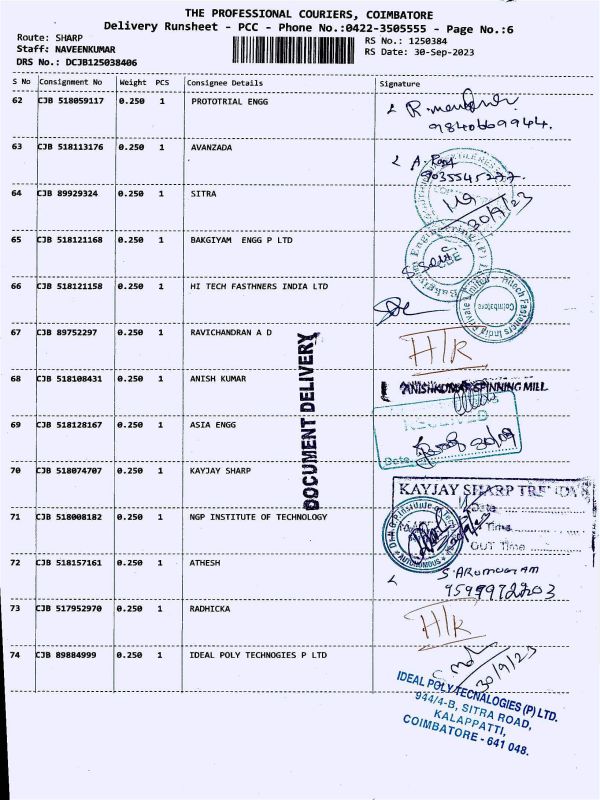 THE PROFESSIONAL COURIERS, COIMBATORE
Delivery Runsheet - PCC - Phone No.:0422-3505555 - Page No.:6
Route: SHARP
Staff: NAVEENKUMAR
DRS No.: DCJB125038406
RS No.: 1250384
RS Date: 30-Sep-2023
S No Consignment No Weight PCS Consignee Details Signature
62 CJB 518059117 0.250 1 PROTOTRIAL ENGG
9840669944.
63 CJB 518113176 0.250 1 AVANZADA
9035545277.
64 CJB 89929324 0.250 1 SITRA
30/9/23
65 CJB 518121168 0.250 1 BAKGIYAM ENGG P LTD
66 CJB 518121158 0.250 1 HI TECH FASTHNERS INDIA LTD
Coimbatore
67 CJB 89752297 0.250 1 RAVICHANDRAN A D
H/R
68 CJB 518108431 0.250 1 ANISH KUMAR
ANISHKUMAR SPINNING MILL
DOCUMENT DELIVERY
69 CJB 518128167 0.250 1 ASIA ENGG
RECEIVED
Date
70 CJB 518074707 0.250 1 KAYJAY SHARP
KAYJAY SHARP
Date
71 CJB 518008182 0.250 1 NGP INSTITUTE OF TECHNOLOGY
AUTONOMOUS
Time
OUT Time
72 CJB 518157161 0.250 1 ATHESH
S. ARUMUGAM
9599972203
73 CJB 517952970 0.250 1 RADHICKA
H/R
74 CJB 89884999 0.250 1 IDEAL POLY TECHNOGIES P LTD
30/9/23
IDEAL POLY TECNALOGIES (P) LTD.
944/4-B, SITRA ROAD,
KALAPPATTI,
COIMBATORE - 641 048.